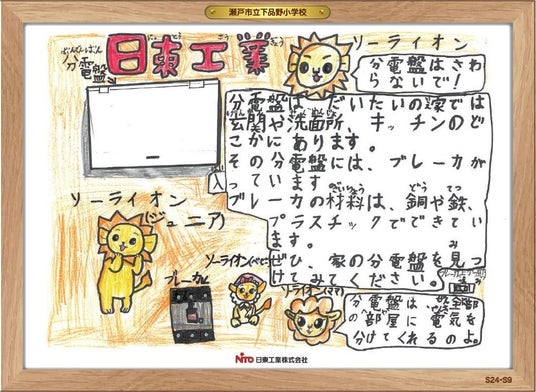 瀬戸市立下品野小学校
ぶんでんばん
分電盤
にっとうこうぎょう
日東工業
ソーライオン
分電盤はさわ
らないで!
分電盤は、だいたいの家では
玄関や洗面所、キッチンのど
こかにあります。
その分電盤には、ブレーカが
入っています
ブレーカの材料は、銅や鉄、
プラスチックでできてい
ます。
ぜひ、家の分電盤を見つ
けてみてください。
ソーライオン
(ジュニア)
ブレーカ
ソーライオン
ソーライオン(ママ)
分電盤は、全部
の部屋に電気を
分けてくれるのよ。
NITO 日東工業株式会社
S24-S9